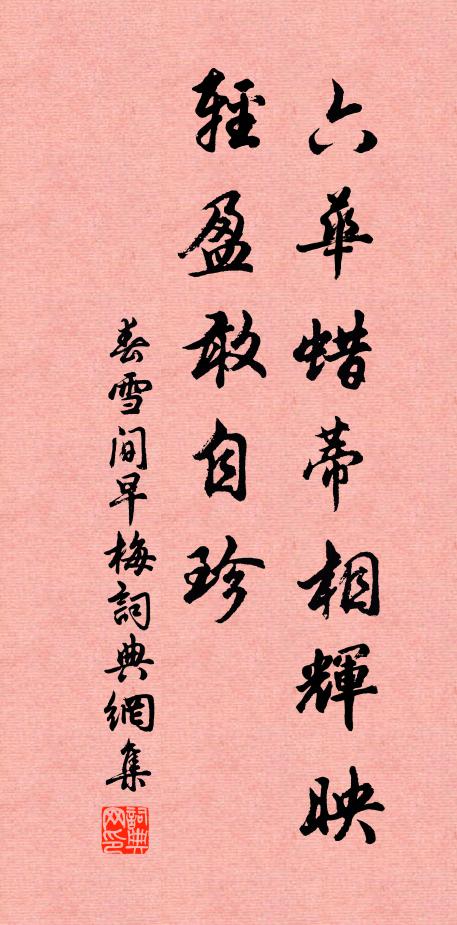 六華蜡蒂相輝映
輕盈敢自珍
春雪间早梅詞典網集
詞典网印